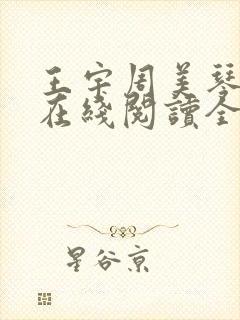 王宇周美琴
在綫閱讀全
星谷京